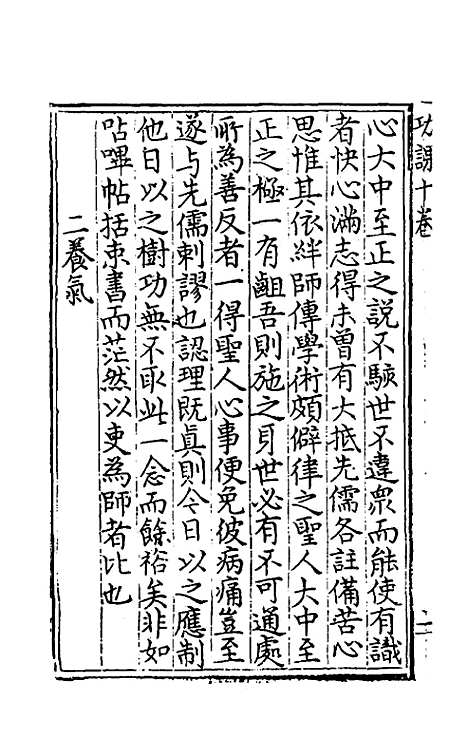 功課十卷
二
心大中至正之說不駭世不違衆而能使有識
者快心滿志得未曾有大抵先儒各註備苦心
思惟其依絆師傳學術頗僻律之聖人大中至
正之極一有齟吾則施之身世必有不可通處
所為善反者一得聖人心事便免彼病痛豈至
遂与先儒刺謬也認理既眞則今日以之應制
他日以之樹功無不取此一念而餘裕矣非如
呫嗶帖括束書而茫然以吏為師者比也
二養氣